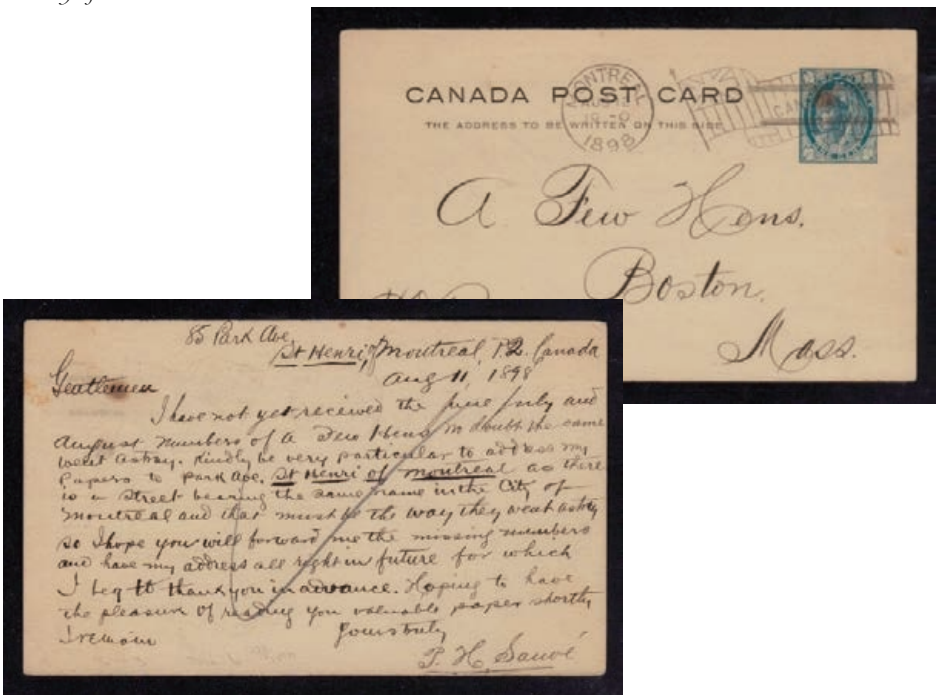 CANADA POST CARD
THE ADDRESS TO BE WRITTEN ON THIS SIDE
MONTREAL
1898
CANADA
A Few Hens.
Boston.
Mass.
85 Park Ave
St Henri, of Montreal, P.Q. Canada
Aug 11, 1898
Gentlemen
I have not yet received the June July and
August numbers of A Few Hens no doubt the same
went astray. Kindly be very particular to address my
Papers to Park Ave. St Henri of Montreal as there
is a street bearing the same name in the City of
Montreal and that must be the way they went astray
so I hope you will forward me the missing numbers
and have my address all right in future for which
I beg to thank you in advance. Hoping to have
the pleasure of reading you valuable paper shortly
I remain
Yours truly
P. H. Sauvé